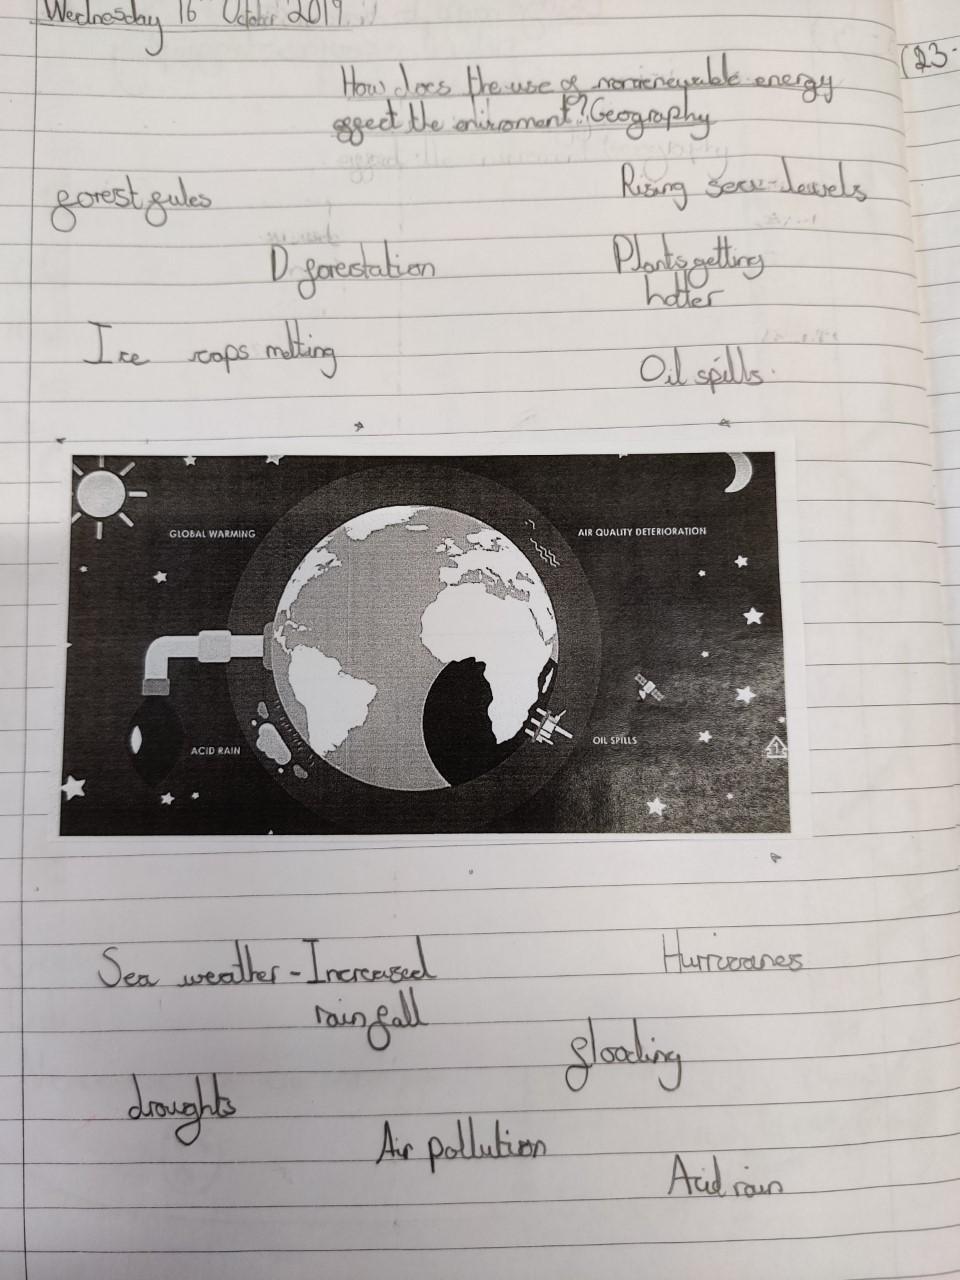 Wednesday 16 October 2019
(23.
How does the use of nonrenewable energy
affect the eniroment? Geography
forest fules
Rising sea-levels
D forestation
Plants getting
hotter
Ice caps melting
Oil spills.
GLOBAL WARMING
AIR QUALITY DETERIORATION
ACID RAIN
OIL SPILLS
1
Sea weather - Increased
rain fall
Hurricanes
flooding
droughts
Air pollution
Acid rain